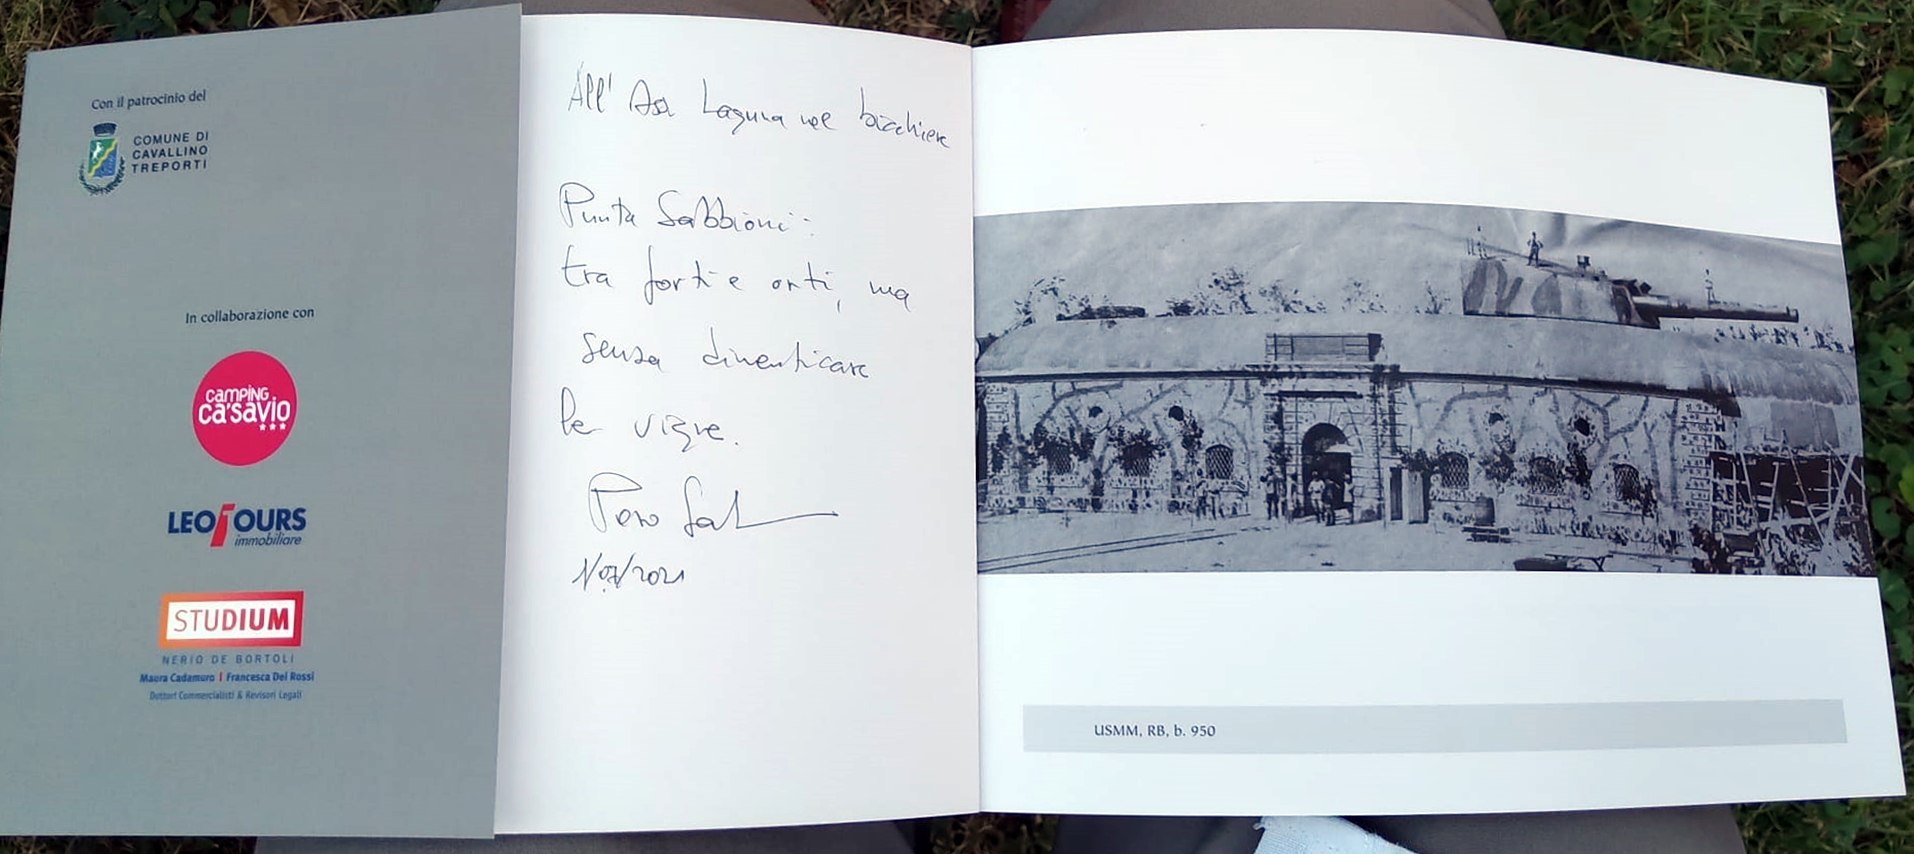 Con il patrocinio del
COMUNE DI
CAVALLINO
TREPORTI
In collaborazione con
CAMPING
ca'savio
LEOFOURS
immobiliare
STUDIUM
NERIO DE BORTOLI
Maura Cadamuro | Francesca Dei Rossi
Dottori Commercialisti & Revisori Legali
All' Laguna nel bicchiere
Punta Sabbioni:
tra forti e orti, ma
senza dimenticare
le vigne.
1/07/2021
USMM, RB, b. 950